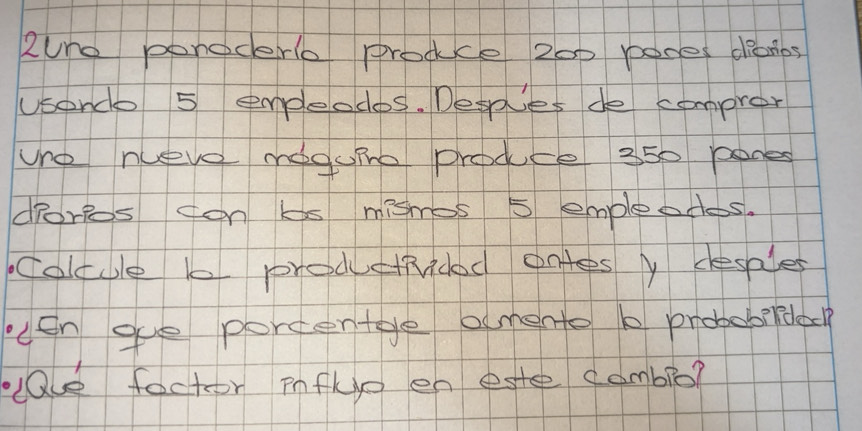 2 una panadería produce 200 panes diarios
usando 5 empleados. Despúes de comprar
una nueva máquina produce 350 panes
diarios con los mismos 5 empleados.
•Calcule la productividad antes y despúes
•¿En que porcentaje aumento la probabilidad?
•¿Qué factor influyo en este cambio?